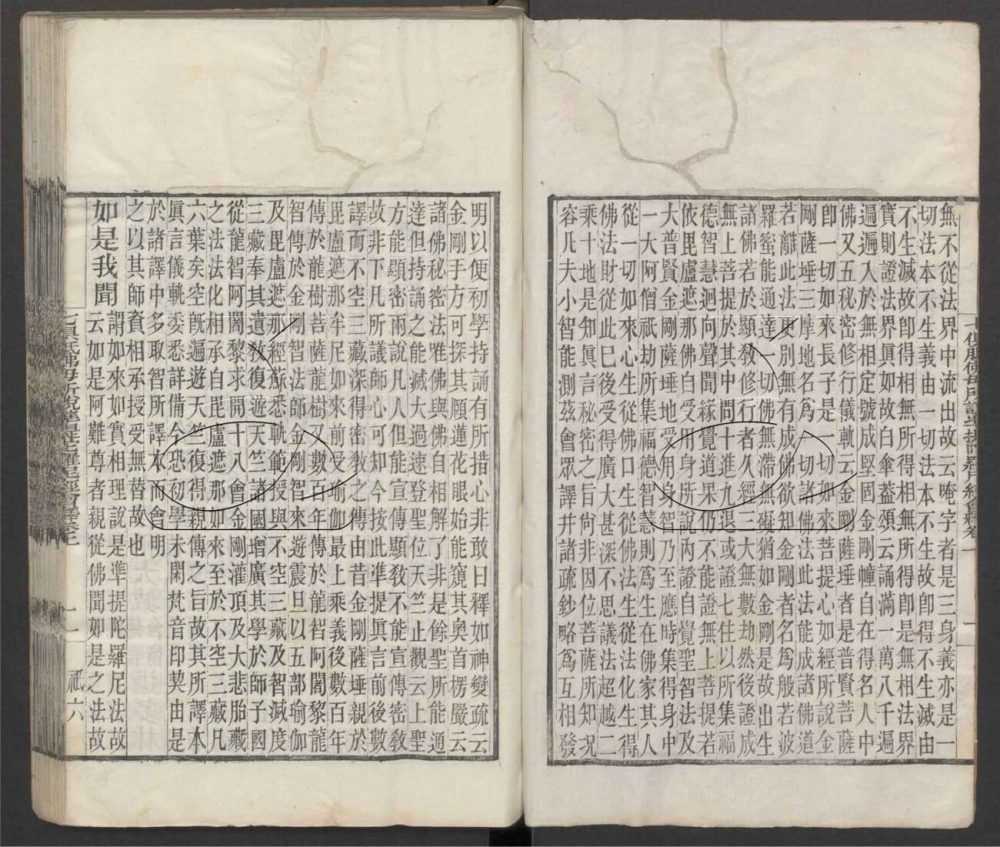 無不從法界中流出故云唵字者是三身義亦是一
切法本不生義由一切法本不生故即得不生滅由
不生滅故即得相無所得由相無所得即是無相法界
實則證法界眞如故白傘蓋頌云誦滿一萬八千遍
遍遍入於無相定號成堅固金剛幢自在得名人中
佛又五秘密修行儀軌云金剛薩埵者是普賢菩薩
即一切如來長子是一切如來菩提心如經所說金
剛薩埵三摩地名爲一切諸佛法此法能成諸佛道
若離此法更別無有成佛欲知金剛者名爲般若波
羅蜜能通達一切佛無滯無礙猶如金剛是故出生
諸佛若於顯敎修行者久經三大無數劫然後證成
無上菩提於其中間十進九退或證七住以所集福
德智慧迴向聲聞緣覺道果仍不能證無上菩提若
依毘盧遮那佛自受用身所說內證自覺聖智法及
大普賢金剛薩埵他受用身智乃至應時集得身中
一大阿僧祇劫所集福德智慧則爲生在佛家其人
從一切如來心生從佛口生從佛法生從法化生得
佛法財從此已後受得廣大甚深不思議法超越二
乘十地是知眞言秘密之旨向非因位菩薩所知况
容凡夫小智能測茲會眾譯并諸疏鈔略爲互相發
明以便初學持誦有所措心非敢曰釋如神變疏云
金剛手方可探其願蓮花眼始能窺其奧首楞嚴云
諸佛秘密法唯佛與佛自相解了非是餘聖所能通
達但持誦之能滅大過速登聖位天竺止觀云上聖
方能顯密兩說凡人但能宣傳顯敎不能宣傳密敎
故非下凡所議師心可知今按此準提眞言前後數
譯而不空三藏深得秘密敎之傳由昔金剛薩埵親於
毘盧遮那牟尼如來前受瑜伽最上乘義後數百年
傳於龍樹菩薩龍樹又數百年傳於龍智阿闍黎龍
智傳於金剛智法師金剛智來遊震旦以五部瑜伽
及毘盧遮那經蘇悉地軌範授與不空三藏及智滅度
三藏奉其遺敎復遊天竺諸國增廣其學於師子國
從龍智阿闍黎求開十八會金剛灌頂及大悲胎藏
之法然法化相承自毘盧遮那如來至於不空三藏凡
六葉矣空旣遍遊天竺復得親傳之旨故其所譯本
眞言儀軌委悉詳備今恐初學未閑梵音印契由是
於諸譯中多取智所譯本而會明
之以其師資相承授受無替故也
如是我聞
謂如來如實相理說是準提陀羅尼法故
云如是阿難尊者親從佛聞如是之法故
一 祇六